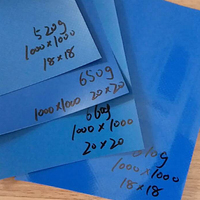 520g
1000×1000
18×18
650g
1000×1000 20×20
1000×1000
20×20
1000×1000
18×18